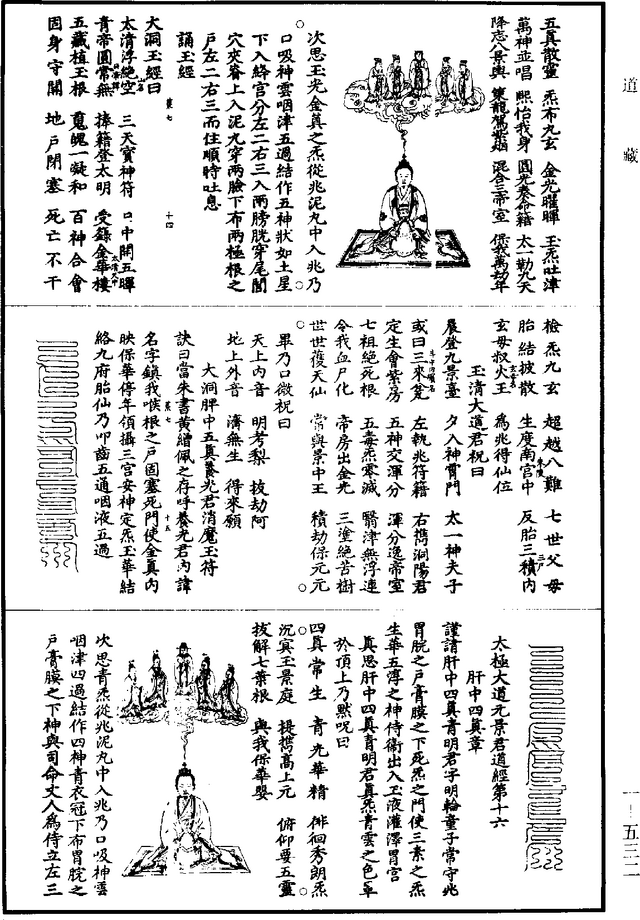 道藏
五真散靈　炁布九玄　金光曜暉　玉炁吐津
萬神並唱　熙怡我身　圓光奏命籍　太一勒九天
降忘八景輿　雙龍駕紫煙　混合三帝室　保我萬劫年
次思玉光金真之炁從兆泥丸中入兆乃
口吸神雲咽津五過結作五神狀如土星
下入絳宮分左二右三入兩膀胱穿尾閭
穴夾脊上入泥丸穿兩臉下布兩極根之
戶左二右三而住順時吐息
誦玉經
大洞玉經曰
太清浮絕空　三天寶神符　口中開五暉
青帝圓常無　捧籍登太明　受錄金華樓
五藏植玉根　魂魄一凝和　百神合會
固身守關　地戶閉塞　死亡不干
檢炁九玄　超越八難　七世父母
胎結披散　生度南宮中　反胎三積內
玄母叔火王　為兆得仙位
玉清大道君祝曰
晨登九景臺　夕入神霄門　太一神夫子
或曰三來　左執兆符籍　右攜洞陽君
定生會紫房　五神交渾分　渾分逸帝室
七祖絕死根　五毒炁零滅　翳津無浮連
令我血尸化　帝房出金光　三塗絕苦樹
世世復天仙　常與景中王　積劫保元元
畢乃口微祝曰
天上內音　明考梨　拔劫阿
地上外音　濟無生　得來願
大洞脾中五真養光君消魔玉符
訣曰當朱書黃繒佩之存呼養光君內諱
名字鎮我喉根之戶固塞死門使金真內
映保華停年領攝三宮安神定炁玉華結
絡九府胎仙乃叩齒五通咽液五過
太極大道元景君道經第十六
肝中四真章
謹請肝中四真青明君字明輪童子常守兆
胃脘之戶膏膜之下死炁之門使三素之炁
生華五薄之神侍衛出入玉液灌澤胃宮
真思肝中四真青明君真炁青雲之色罩
於頂上乃默呪曰
四真常生　青光華精　徘徊秀朗炁
沉寅玉景庭　提攜高上元　俯仰要五靈
拔解七葉根　與我保華嬰
次思青炁從兆泥丸中入兆乃口吸神雲
咽津四過結作四神青衣冠下布胃脘之
戶膏膜之下神與司命丈人為侍立左三
一－五三二